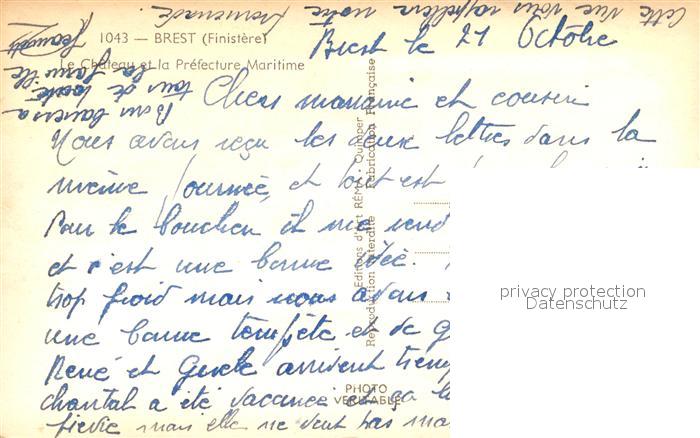 Cette vue vous rappellera notre
promenade.
1043 — BREST (Finistère)
Le Château et la Préfecture Maritime
Brest le 21 Octobre
Bons baisers à
tous de toute
la famille
Chers marraine et cousin
Nous avons reçu les deux lettres dans la
même journée, et tout est
Pour le boucher il me rend
et c'est une bonne idée.
trop froid mais nous avons
une bonne tempête et de
René et Gisèle arrivent
chantal a été vacciné et ça
fièvre mais elle ne veut pas
Editions d'art RÉMA - Quimper
Reproduction Interdite Fabrication Française
PHOTO
VÉRITABLE
privacy protection
Datenschutz